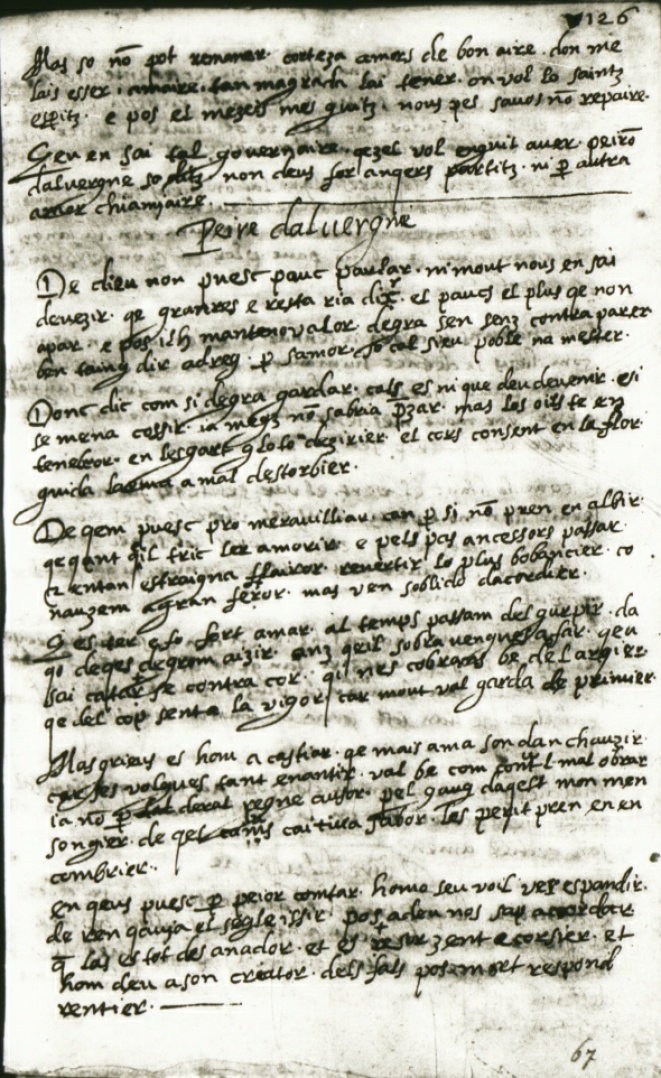 126
Mas so nõ pot remaner. corteza amors de bon aire. don me
lais esser. amaire. tan magrada lai tener. on vol lo saintz
esperitz. e pos el mezeis mes guitz. nous pes savos nõ repaire.
Qeu en sai tal governaire. qezel vol enguit aver. peirõ
daluergne so non deus far angers partitz. ni p autra
amor chamiaire.
Peire daluergne
De dieu non puesc pauc parlar. ni mout nous en sai
devezir. qe granres e resta ria dir. el paucs el plus qe non
apar. e pos ilh mantenovalor. degra sen senz contra parer
ben taing dir adreg. p samor. so cal sieu poble na mester.
Donc dic com si degra gardar. cals es ni que deu devenir. e si
se mena cossir. ia megz nõ sabria pzar. mas los oils te en
tenebror. en lesgart qloto dezirier. el cors consent en la flor.
guida larma a mal destorbier.
De qem puesc pro meravilliar. can p si nõ pren en albir.
qe qant fil fric ler amorir. e pels pas ancessors passar
entan estraigna flairor. revertir. lo plus bobancier. co
nauzem a gran feror. mas ven soblido dacordier.
es ter qfo fort amar. al temps passam del gurpir. da
qo deqes degrom aizir. anz qeil sobra vengues afar. qeu
sai se contra cor. qi nes cobraras be de largier
qe del cop senta la vigor. car mout val garda de primier.
Mas grieus es hom a castiar. qe mais ama son dan chauzir.
car ses volgues tant enantir. val be com mal obrar
ia nõ p deral regne autor. pel gaug daqest mon men
songier. de qel caitiva sabor. les perit pren en en
combrier.
En qeus puesc p peior comtar. homo seu voil ver espandir.
de ren qauia el segle issir. pos a deu nos sap acordar
q las es tot des anador. et es zent e corsier. et
hom deu a son creator. dels fals pos mort respond
rentier.
67